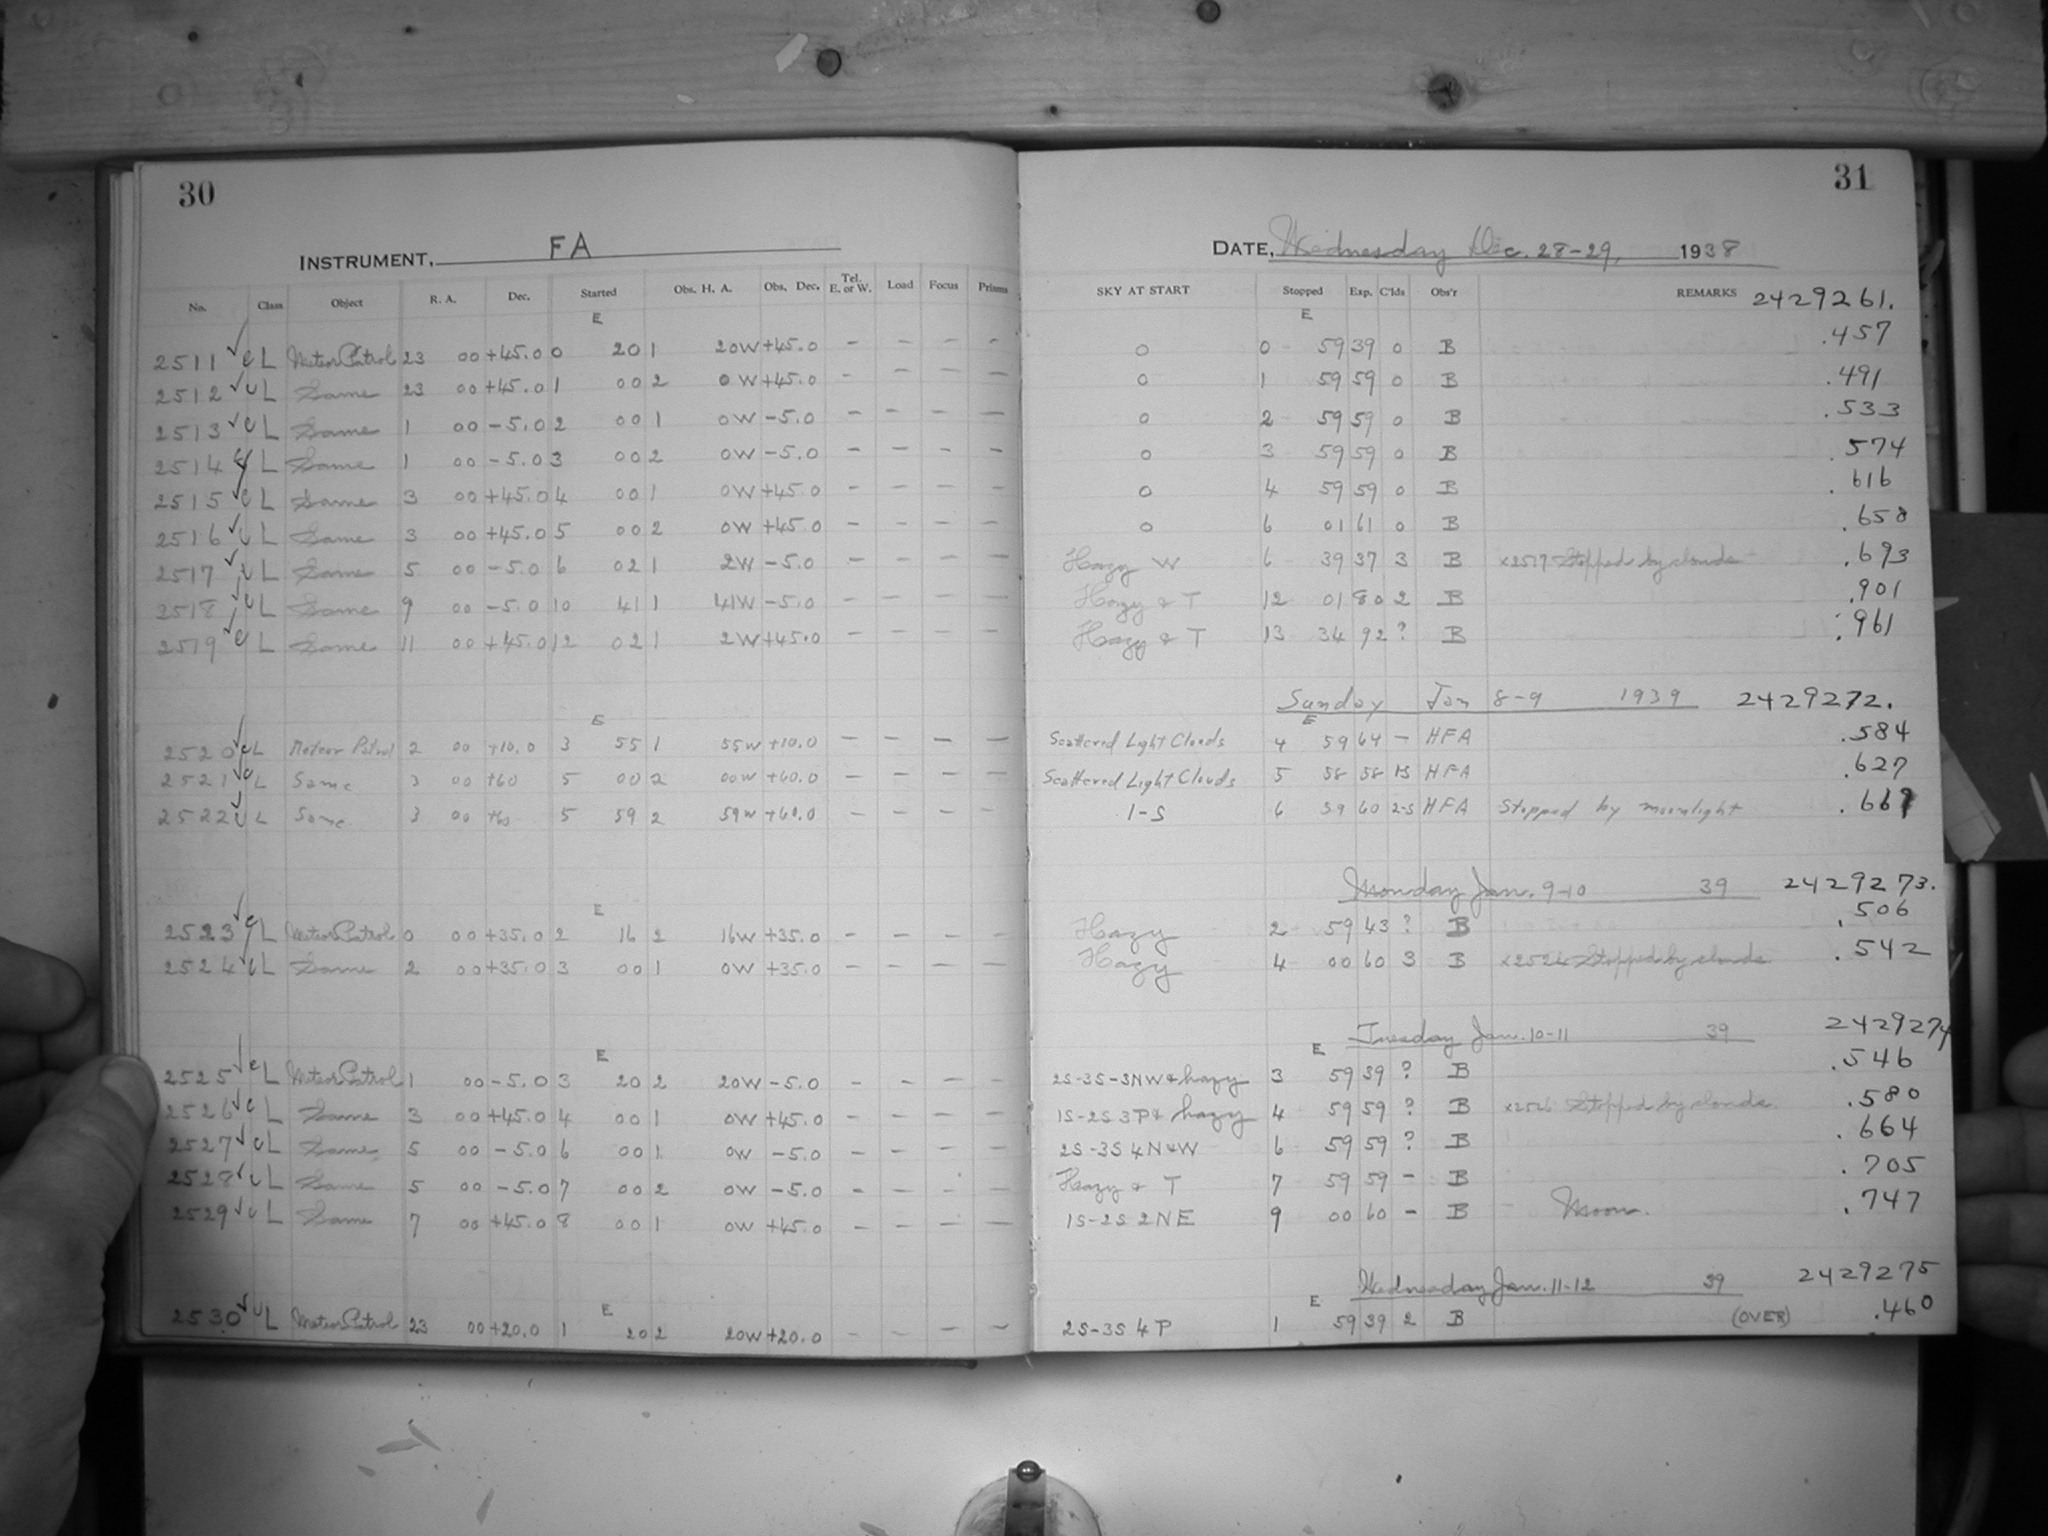 30
31
INSTRUMENT, FA
DATE, Wednesday Dec. 28-29, 1938
No. Class Object R. A. Dec. Started Obs. H. A. Obs. Dec. Tel. E. or W. Load Focus Prisms SKY AT START Stopped Exp. C'lds Obs'r REMARKS 2429261.
E E
2511 ✓ c L Meteor Patrol 23 00 +45.0 0 20 1 20W +45.0 - - - - 0 0 59 39 0 B .457
2512 ✓ c L Same 23 00 +45.0 1 00 2 0W +45.0 - - - - 0 1 59 59 0 B .491
2513 ✓ c L Same 1 00 -5.0 2 00 1 0W -5.0 - - - - 0 2 59 59 0 B .533
2514 ✓ c L Same 1 00 -5.0 3 00 2 0W -5.0 - - - - 0 3 59 59 0 B .574
2515 ✓ c L Same 3 00 +45.0 4 00 1 0W +45.0 - - - - 0 4 59 59 0 B .616
2516 ✓ c L Same 3 00 +45.0 5 00 2 0W +45.0 - - - - 0 6 01 61 0 B .658
2517 ✓ c L Same 5 00 -5.0 6 02 1 2W -5.0 - - - - Hazy W 6 39 37 3 B x2517 Stopped by clouds .693
2518 ✓ c L Same 9 00 -5.0 10 41 1 41W -5.0 - - - - Hazy & T 12 01 80 2 B .901
2519 ✓ c L Same 11 00 +45.0 12 02 1 2W +45.0 - - - - Hazy & T 13 34 92 ? B .961
Sunday Jan 8-9 1939 2429272.
E E
2520 ✓ c L Meteor Patrol 2 00 +10.0 3 55 1 55W +10.0 - - - - Scattered Light Clouds 4 59 64 - HFA .584
2521 ✓ c L Same 3 00 +60 5 00 2 00W +60.0 - - - - Scattered Light Clouds 5 58 58 HFA .627
2522 ✓ c L Same 3 00 +60 5 59 2 59W +60.0 - - - - 1-S 6 59 60 2-S HFA Stopped by moonlight .669
Monday Jan. 9-10 39 2429273.
E
2523 ✓ c L Meteor Patrol 0 00 +35.0 2 16 2 16W +35.0 - - - - Hazy 2 59 43 ? B .506
2524 ✓ c L Same 2 00 +35.0 3 00 1 0W +35.0 - - - - Hazy 4 00 60 3 B x2524 Stopped by clouds .542
Tuesday Jan. 10-11 39 2429274
E E
2525 ✓ c L Meteor Patrol 1 00 -5.0 3 20 2 20W -5.0 - - - - 2S-3S-3NW & hazy 3 59 39 ? B .546
2526 ✓ c L Same 3 00 +45.0 4 00 1 0W +45.0 - - - - 1S-2S 3P & hazy 4 59 59 ? B x2526 Stopped by clouds .580
2527 ✓ c L Same 5 00 -5.0 6 00 1 0W -5.0 - - - - 2S-3S 4N&W 6 59 59 ? B .664
2528 ✓ c L Same 5 00 -5.0 7 00 2 0W -5.0 - - - - Hazy & T 7 59 59 - B .705
2529 ✓ c L Same 7 00 +45.0 8 00 1 0W +45.0 - - - - 1S-2S 2NE 9 00 60 - B Moon. .747
Wednesday Jan. 11-12 39 2429275
E E
2530 ✓ c L Meteor Patrol 23 00 +20.0 1 20 2 20W +20.0 - - - - 2S-3S 4P 1 59 39 2 B (OVER) .460